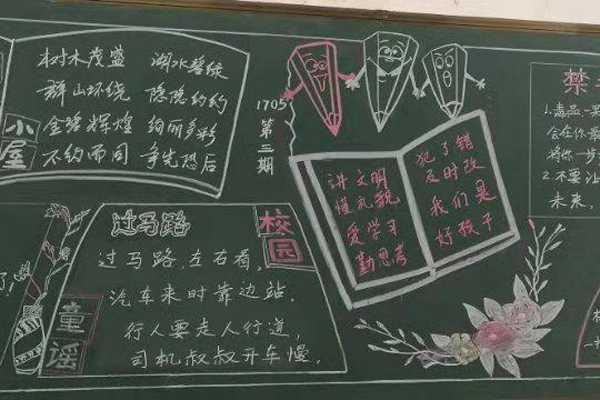 树木茂盛 湖水碧绿
群山环绕 隐隐约约
金碧辉煌 绚丽多彩
不约而同 争先恐后
小屋
1705
第三期
过马路
过马路,左右看,
汽车来时靠边站.
行人要走人行道,
司机叔叔开车慢.
校园
童谣
讲文明
懂礼貌
爱学习
勤思考
犯了错
及时改
我们是
好孩子
禁
1.毒品,一
会在你最
将你一步
2.不要让
未来,